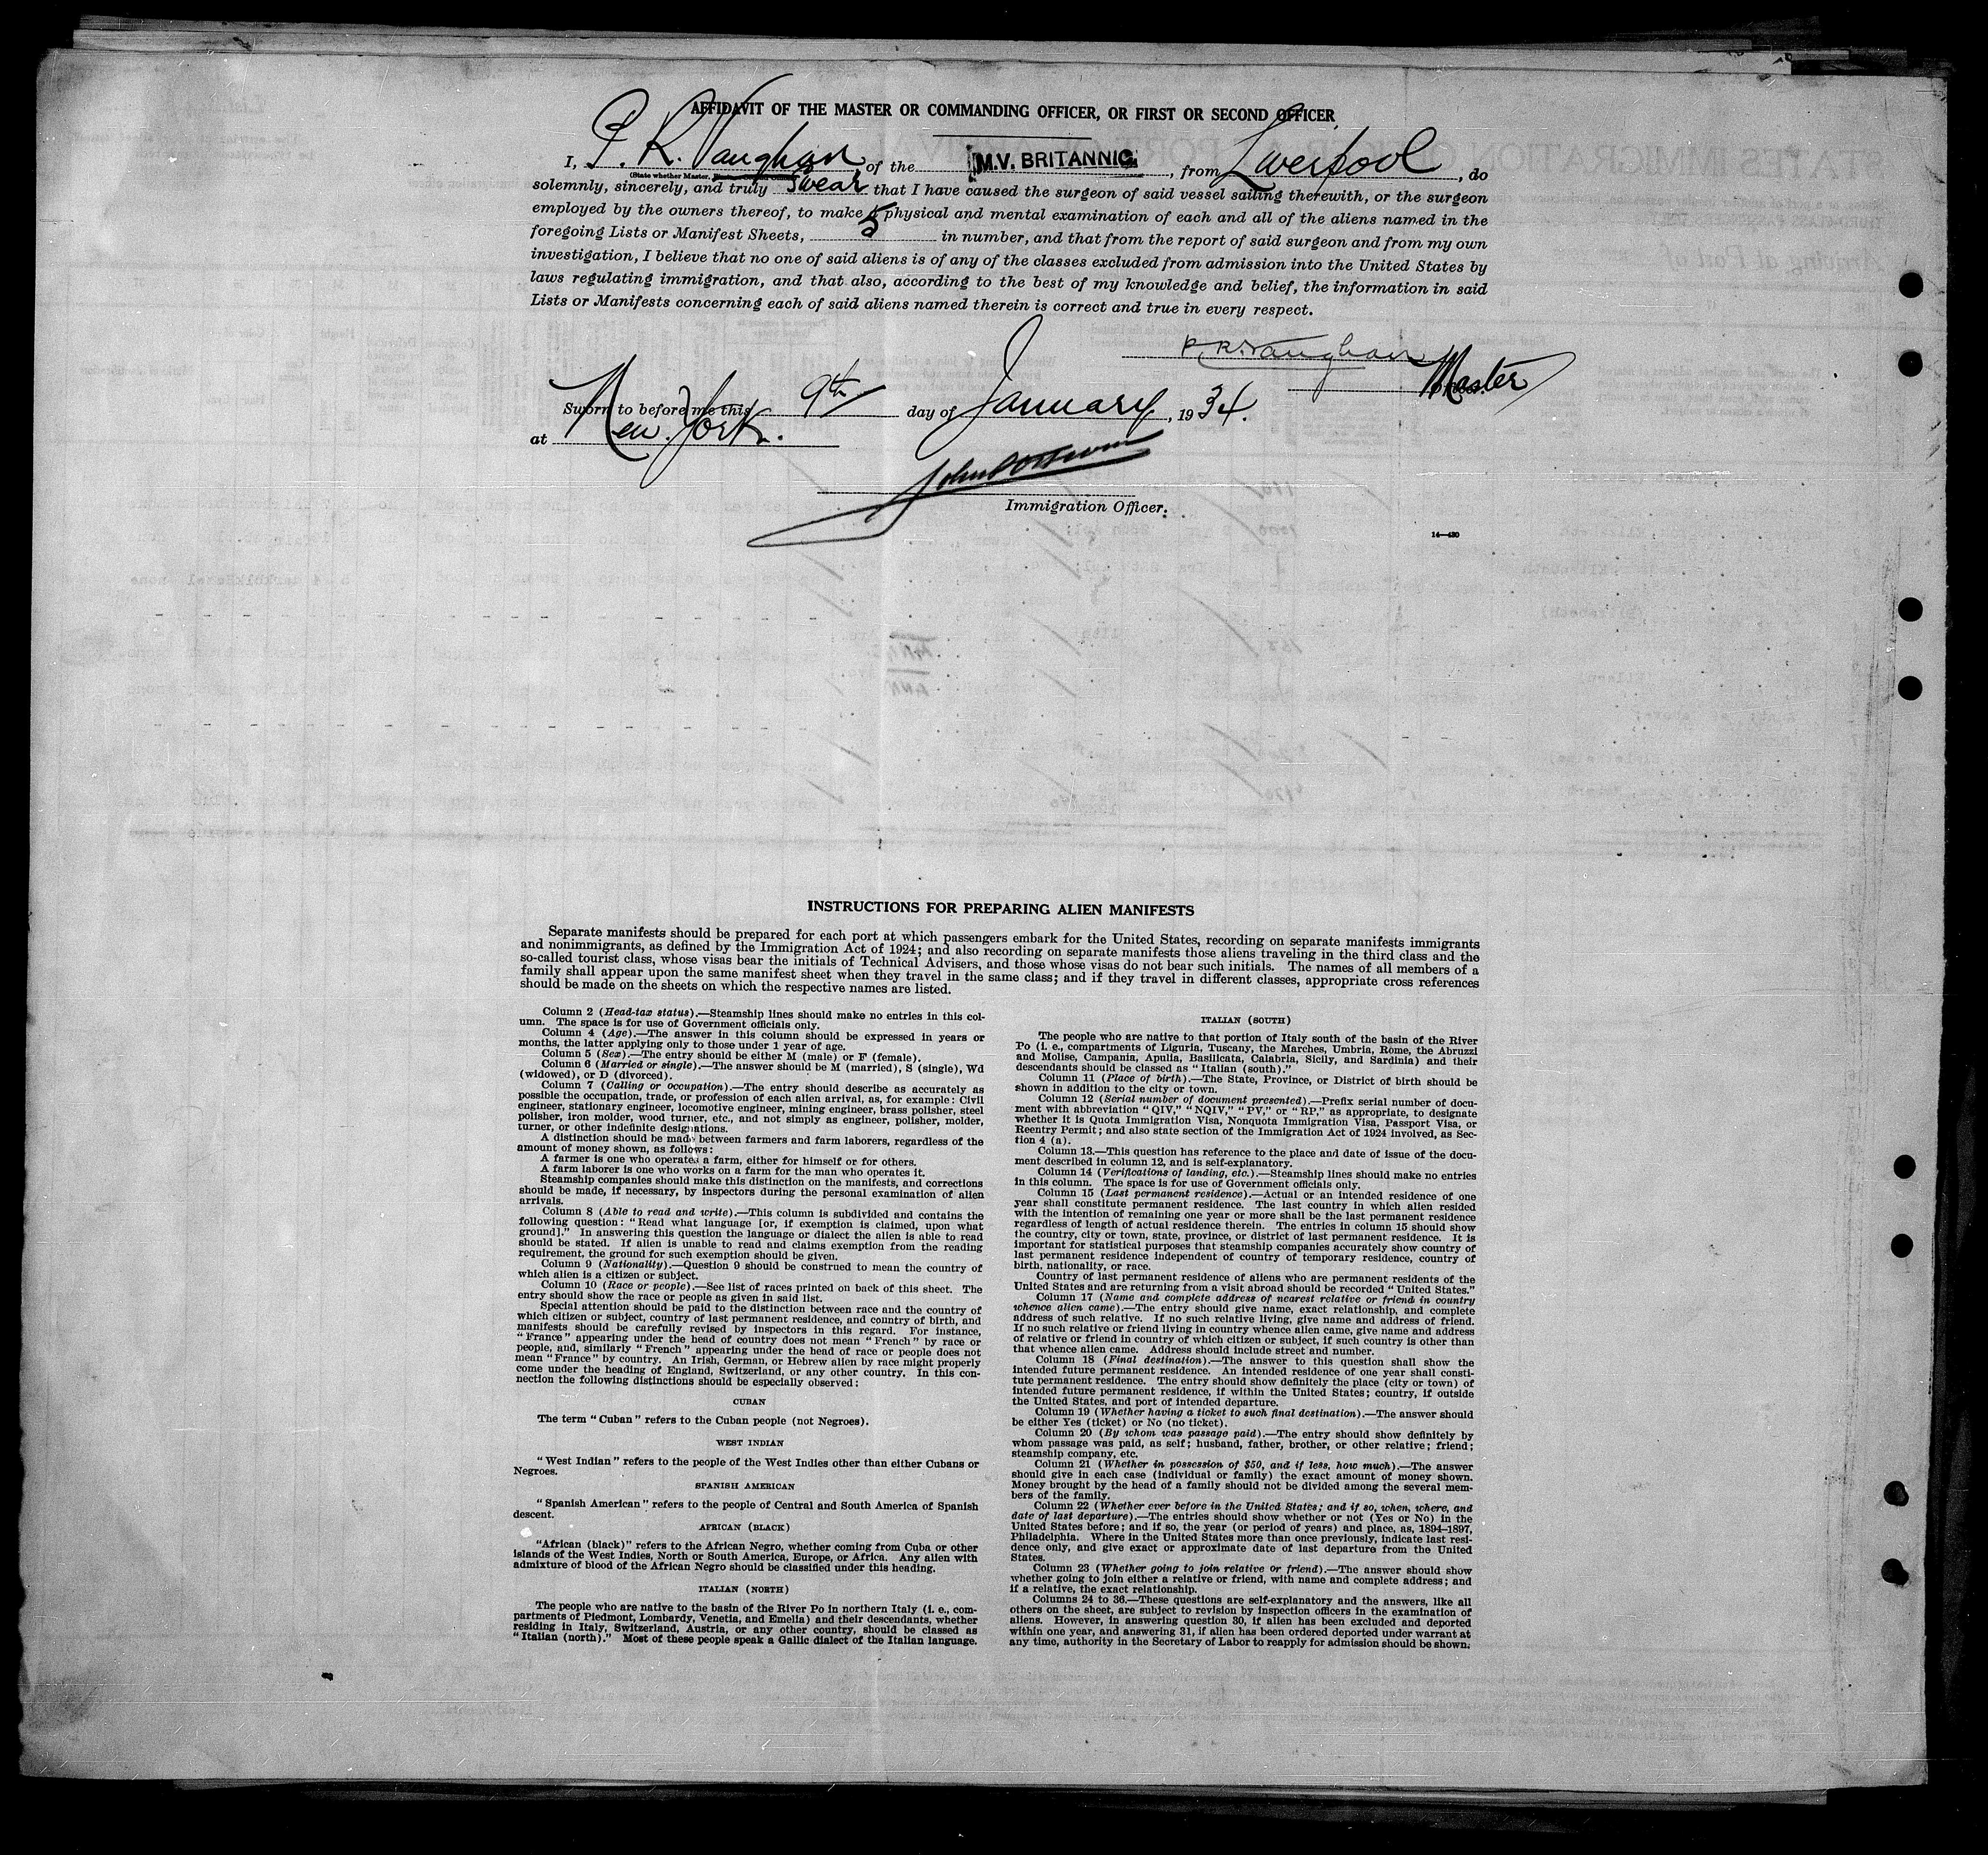 AFFIDAVIT OF THE MASTER OR COMMANDING OFFICER, OR FIRST OR SECOND OFFICER
I, P. R. Vaughan, of the M.V. BRITANNIC, from Liverpool, do
(State whether Master,
solemnly, sincerely, and truly swear that I have caused the surgeon of said vessel sailing therewith, or the surgeon
employed by the owners thereof, to make a physical and mental examination of each and all of the aliens named in the
foregoing Lists or Manifest Sheets, 5 in number, and that from the report of said surgeon and from my own
investigation, I believe that no one of said aliens is of any of the classes excluded from admission into the United States by
laws regulating immigration, and that also, according to the best of my knowledge and belief, the information in said
Lists or Manifests concerning each of said aliens named therein is correct and true in every respect.
P. R. Vaughan
Master
Sworn to before me this 9th day of January, 1934.
at New York.
Immigration Officer.
14—430
INSTRUCTIONS FOR PREPARING ALIEN MANIFESTS
Separate manifests should be prepared for each port at which passengers embark for the United States, recording on separate manifests immigrants
and nonimmigrants, as defined by the Immigration Act of 1924; and also recording on separate manifests those aliens traveling in the third class and the
so-called tourist class, whose visas bear the initials of Technical Advisers, and those whose visas do not bear such initials. The names of all members of a
family shall appear upon the same manifest sheet when they travel in the same class; and if they travel in different classes, appropriate cross references
should be made on the sheets on which the respective names are listed.
Column 2 (Head-tax status).—Steamship lines should make no entries in this col-
umn. The space is for use of Government officials only.
Column 4 (Age).—The answer in this column should be expressed in years or
months, the latter applying only to those under 1 year of age.
Column 5 (Sex).—The entry should be either M (male) or F (female).
Column 6 (Married or single).—The answer should be M (married), S (single), Wd
(widowed), or D (divorced).
Column 7 (Calling or occupation).—The entry should describe as accurately as
possible the occupation, trade, or profession of each alien arrival, as, for example: Civil
engineer, stationary engineer, locomotive engineer, mining engineer, brass polisher, steel
polisher, iron molder, wood turner, etc., and not simply as engineer, polisher, molder,
turner, or other indefinite designations.
A distinction should be made between farmers and farm laborers, regardless of the
amount of money shown, as follows:
A farmer is one who operates a farm, either for himself or for others.
A farm laborer is one who works on a farm for the man who operates it.
Steamship companies should make this distinction on the manifests, and corrections
should be made, if necessary, by inspectors during the personal examination of alien
arrivals.
Column 8 (Able to read and write).—This column is subdivided and contains the
following question: "Read what language [or, if exemption is claimed, upon what
ground]." In answering this question the language or dialect the alien is able to read
should be stated. If alien is unable to read and claims exemption from the reading
requirement, the ground for such exemption should be given.
Column 9 (Nationality).—Question 9 should be construed to mean the country of
which alien is a citizen or subject.
Column 10 (Race or people).—See list of races printed on back of this sheet. The
entry should show the race or people as given in said list.
Special attention should be paid to the distinction between race and the country of
which citizen or subject, country of last permanent residence, and country of birth, and
manifests should be carefully revised by inspectors in this regard. For instance,
"France" appearing under the head of country does not mean "French" by race or
people, and, similarly "French" appearing under the head of race or people does not
mean "France" by country. An Irish, German, or Hebrew alien by race might properly
come under the heading of England, Switzerland, or any other country. In this con-
nection the following distinctions should be especially observed:
CUBAN
The term "Cuban" refers to the Cuban people (not Negroes).
WEST INDIAN
"West Indian" refers to the people of the West Indies other than either Cubans or
Negroes.
SPANISH AMERICAN
"Spanish American" refers to the people of Central and South America of Spanish
descent.
AFRICAN (BLACK)
"African (black)" refers to the African Negro, whether coming from Cuba or other
islands of the West Indies, North or South America, Europe, or Africa. Any alien with
admixture of blood of the African Negro should be classified under this heading.
ITALIAN (NORTH)
The people who are native to the basin of the River Po in northern Italy (i. e., com-
partments of Piedmont, Lombardy, Venetia, and Emelia) and their descendants, whether
residing in Italy, Switzerland, Austria, or any other country, should be classed as
"Italian (north)." Most of these people speak a Gallic dialect of the Italian language.
ITALIAN (SOUTH)
The people who are native to that portion of Italy south of the basin of the River
Po (i. e., compartments of Liguria, Tuscany, the Marches, Umbria, Rome, the Abruzzi
and Molise, Campania, Apulia, Basilicata, Calabria, Sicily, and Sardinia) and their
descendants should be classed as "Italian (south)."
Column 11 (Place of birth).—The State, Province, or District of birth should be
shown in addition to the city or town.
Column 12 (Serial number of document presented).—Prefix serial number of docu-
ment with abbreviation "QIV," "NQIV," "PV," or "RP," as appropriate, to designate
whether it is Quota Immigration Visa, Nonquota Immigration Visa, Passport Visa, or
Reentry Permit; and also state section of the Immigration Act of 1924 involved, as Sec-
tion 4 (a).
Column 13.—This question has reference to the place and date of issue of the docu-
ment described in column 12, and is self-explanatory.
Column 14 (Verifications of landing, etc.).—Steamship lines should make no entries
in this column. The space is for use of Government officials only.
Column 15 (Last permanent residence).—Actual or an intended residence of one
year shall constitute permanent residence. The last country in which alien resided
with the intention of remaining one year or more shall be the last permanent residence
regardless of length of actual residence therein. The entries in column 15 should show
the country, city or town, state, province, or district of last permanent residence. It is
important for statistical purposes that steamship companies accurately show country of
last permanent residence independent of country of temporary residence, country of
birth, nationality, or race.
Country of last permanent residence of aliens who are permanent residents of the
United States and are returning from a visit abroad should be recorded "United States."
Column 17 (Name and complete address of nearest relative or friend in country
whence alien came).—The entry should give name, exact relationship, and complete
address of such relative. If no such relative living, give name and address of friend.
If no such relative or friend living in country whence alien came, give name and address
of relative or friend in country of which citizen or subject, if such country is other than
that whence alien came. Address should include street and number.
Column 18 (Final destination).—The answer to this question shall show the
intended future permanent residence. An intended residence of one year shall consti-
tute permanent residence. The entry should show definitely the place (city or town) of
intended future permanent residence, if within the United States; country, if outside
the United States, and port of intended departure.
Column 19 (Whether having a ticket to such final destination).—The answer should
be either Yes (ticket) or No (no ticket).
Column 20 (By whom was passage paid).—The entry should show definitely by
whom passage was paid, as self; husband, father, brother, or other relative; friend;
steamship company, etc.
Column 21 (Whether in possession of $50, and if less, how much).—The answer
should give in each case (individual or family) the exact amount of money shown.
Money brought by the head of a family should not be divided among the several mem-
bers of the family.
Column 22 (Whether ever before in the United States; and if so, when, where, and
date of last departure).—The entries should show whether or not (Yes or No) in the
United States before; and if so, the year (or period of years) and place, as, 1894–1897,
Philadelphia. Where in the United States more than once previously, indicate last resi-
dence only, and give exact or approximate date of last departure from the United
States.
Column 23 (Whether going to join relative or friend).—The answer should show
whether going to join either a relative or friend, with name and complete address; and
if a relative, the exact relationship.
Columns 24 to 36.—These questions are self-explanatory and the answers, like all
others on the sheet, are subject to revision by inspection officers in the examination of
aliens. However, in answering question 30, if alien has been excluded and deported
within one year, and answering 31, if alien has been ordered deported under warrant at
any time, authority in the Secretary of Labor to reapply for admission should be shown.